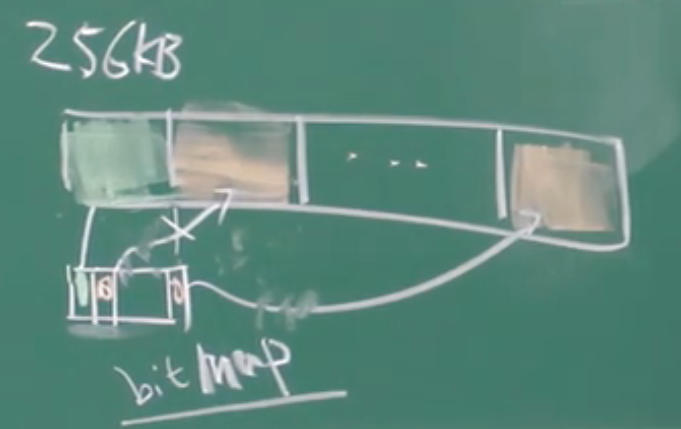 256KB
...
0 0
bitmap